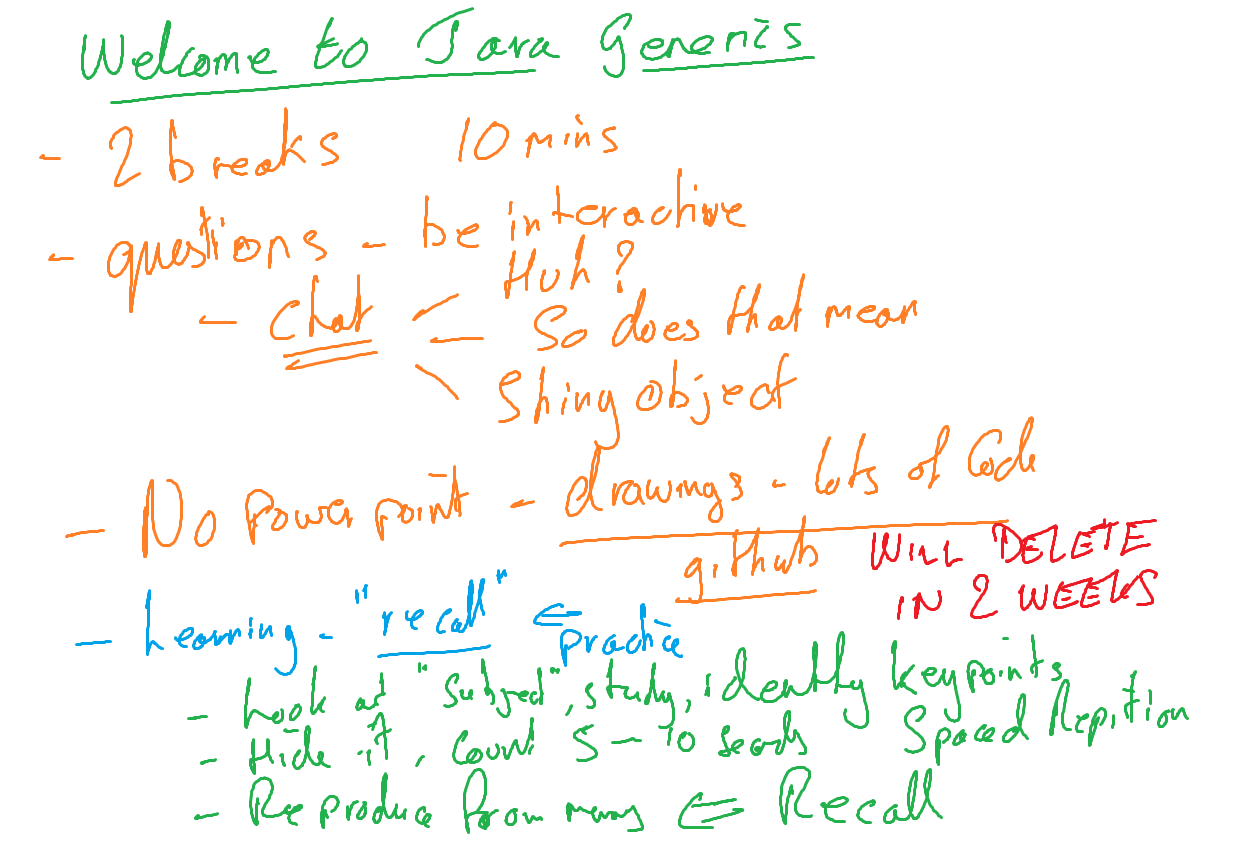 Welcome to Java Generics
- 2 breaks 10 mins
- questions - be interactive
Huh?
- chat - So does that mean
Shiny object
- No Powerpoint - drawings - lots of Code
github WILL DELETE
IN 2 WEEKS
- Learning - "recall" ⇐ practice
- Look at "Subject", study, identify keypoints
- Hide it, Count 5-10 seconds Spaced Repition
- Reproduce from memory ⇐ Recall